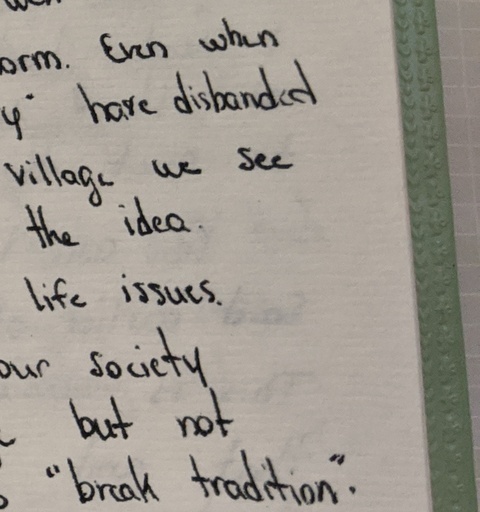 orm. Even when
y" have disbanded
village we see
the idea.
life issues.
our society
but not
"break tradition".